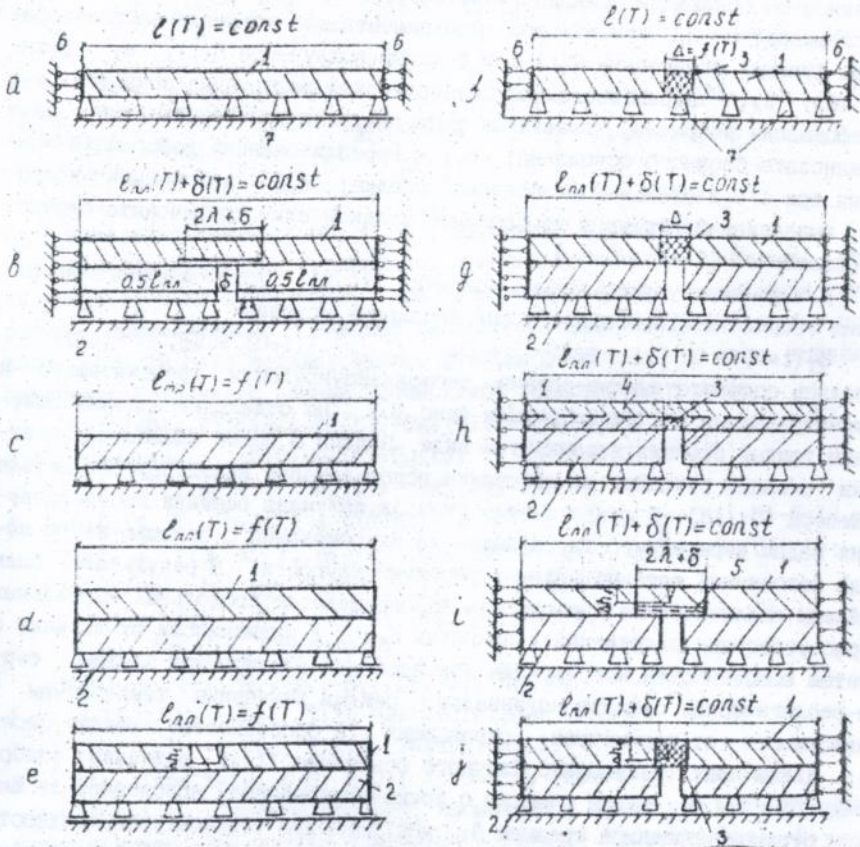 ℓ(T) = const
6
6
1
a
7
ℓпл(T) + δ(T) = const
2λ + δ
1
b
0,5ℓпл
δ
0,5ℓпл
2
ℓпл(T) = f(T)
1
c
ℓпл(T) = f(T)
1
d
2
ℓпл(T) = f(T)
1
e
2
ℓ(T) = const
6
Δ = f(T)
3
1
6
f
7
ℓпл(T) + δ(T) = const
Δ
3
1
g
2
ℓпл(T) + δ(T) = const
1
4
3
h
2
ℓпл(T) + δ(T) = const
2λ + δ
5
1
i
2
ℓпл(T) + δ(T) = const
1
j
2
3